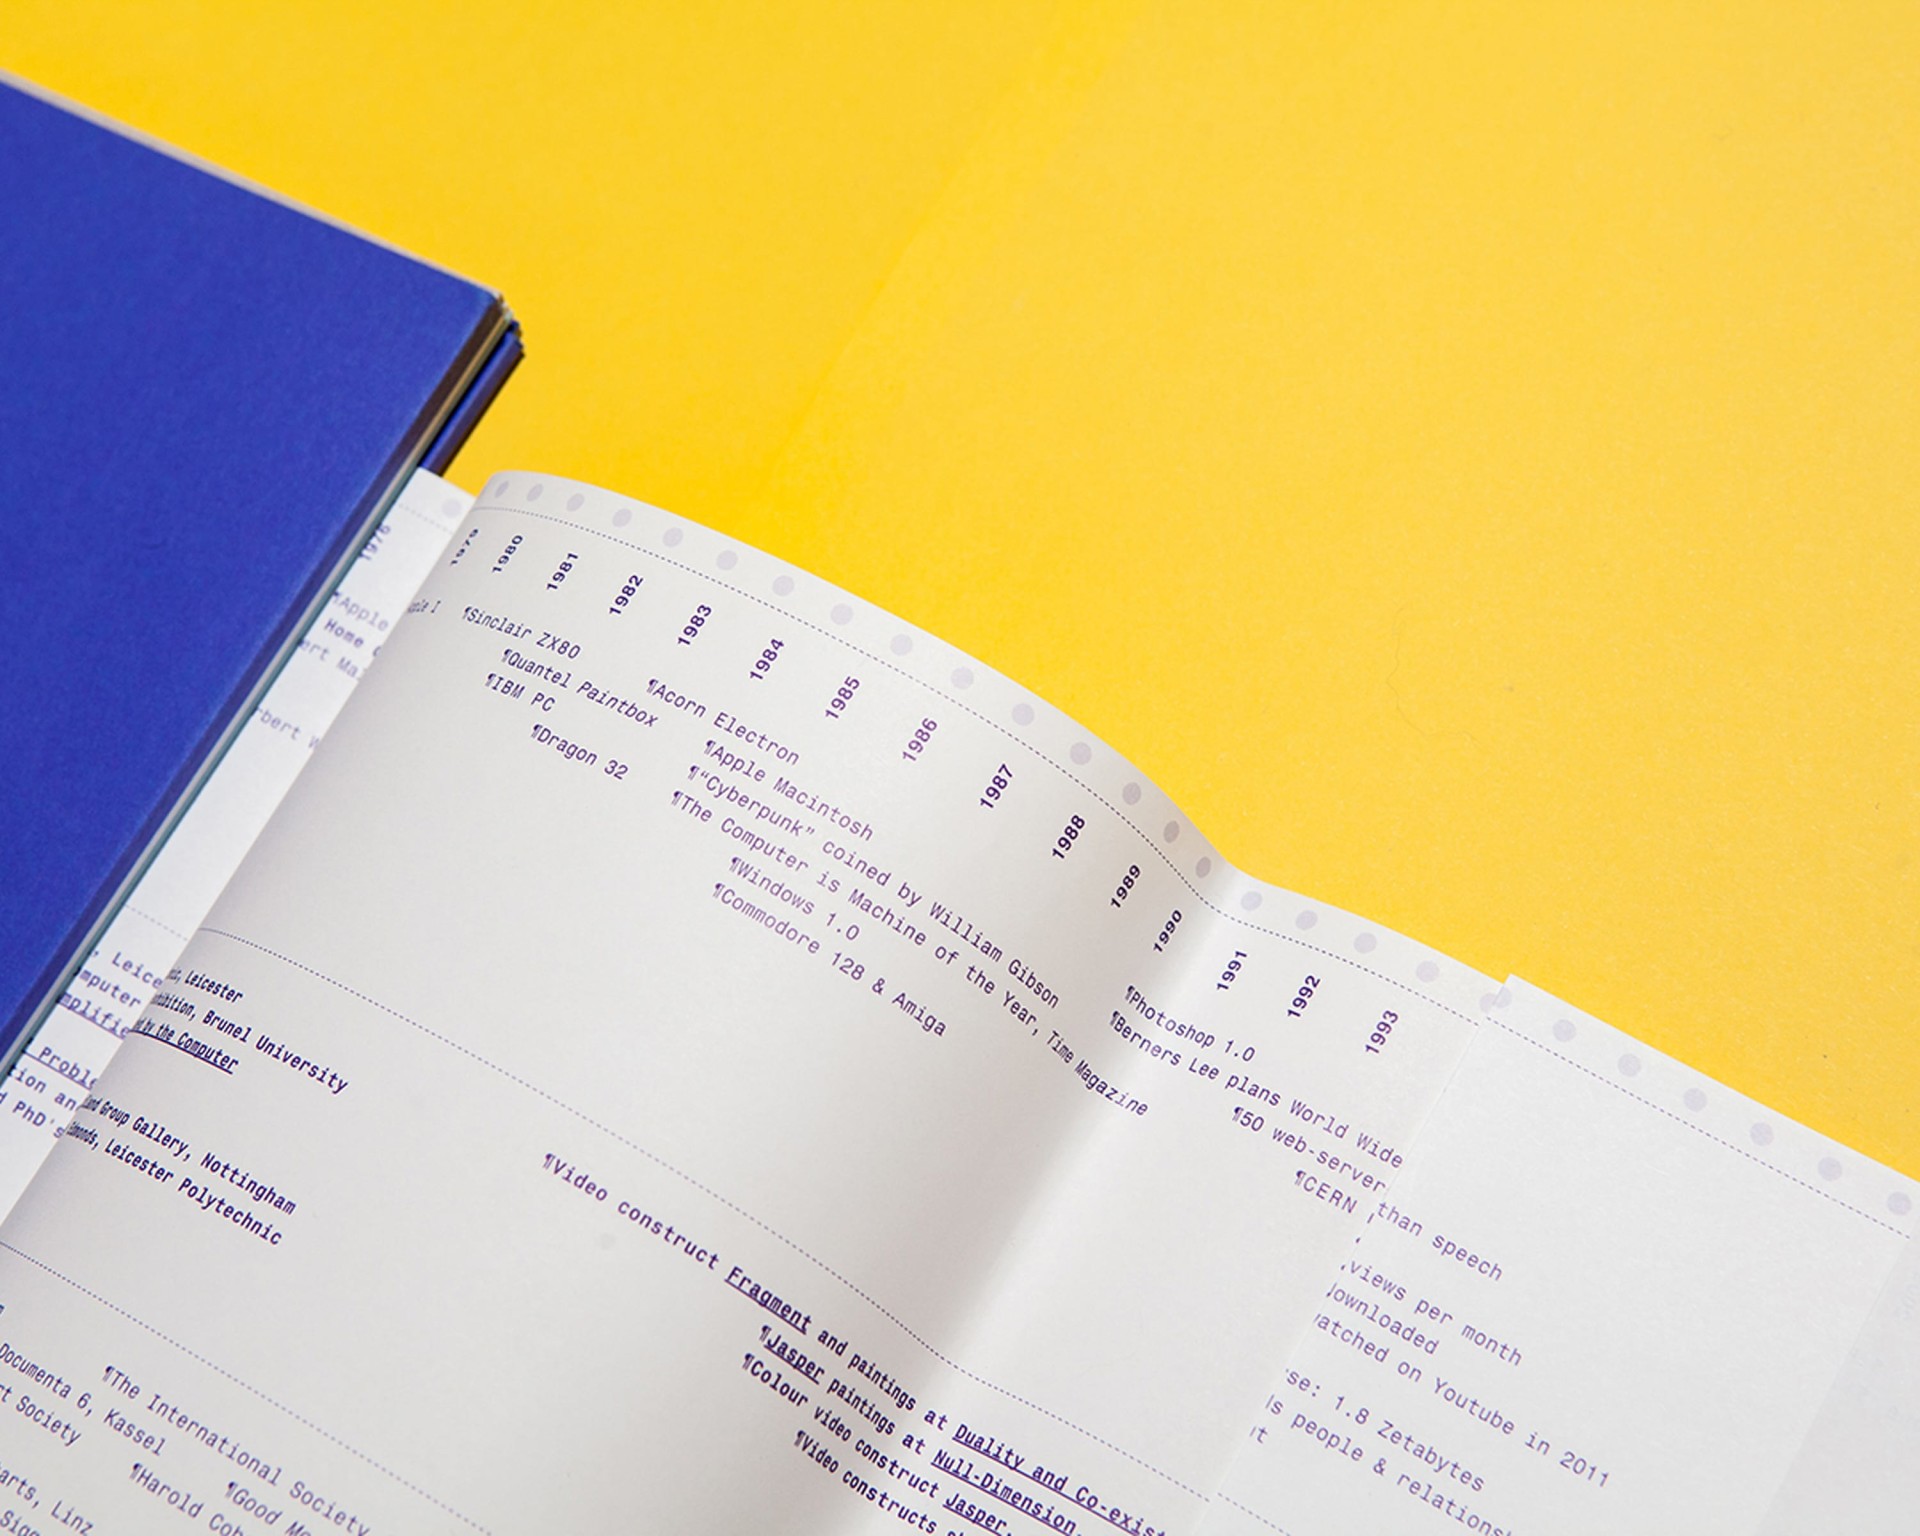 1976
1979
1980
1981
1982
1983
1984
1985
1986
1987
1988
1989
1990
1991
1992
1993
¶Apple
Home
¶Sinclair ZX80
¶Quantel Paintbox
¶IBM PC
¶Dragon 32
¶Acorn Electron
¶Apple Macintosh
¶“Cyberpunk” coined by William Gibson
¶The Computer is Machine of the Year, Time Magazine
¶Windows 1.0
¶Commodore 128 & Amiga
¶Photoshop 1.0
¶Berners Lee plans World Wide
¶50 web-server
¶CERN
than speech
views per month
downloaded
watched on Youtube in 2011
se: 1.8 Zetabytes
people & relations
, Leice
mputer
mplifie
Proble
tion an
d PhD's
, Leicester
Exhibition, Brunel University
by the Computer
and Group Gallery, Nottingham
Edmonds, Leicester Polytechnic
¶Video construct Fragment and paintings at Duality and Co-exist
¶Jasper paintings at Null-Dimension,
¶Colour video construct Jasper,
¶Video constructs
Documenta 6, Kassel
rt Society
¶The International Society
¶Harold Coh
¶Good
arts, Linz